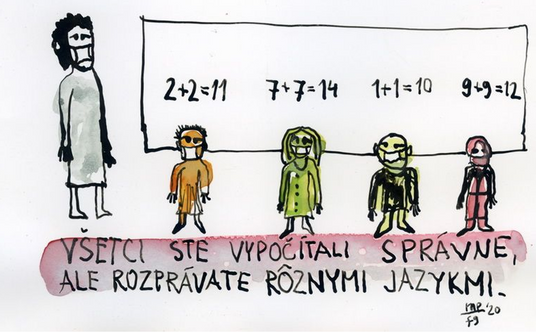 2+2=11 7+7=14 1+1=10 9+9=12
VŠETCI STE VYPOČÍTALI SPRÁVNE,
ALE ROZPRÁVATE RÔZNYMI JAZYKMI.
'20